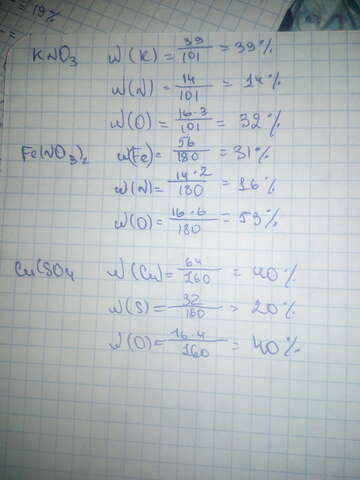 = 19%
KNO₃ W(K) = 39/101 = 39%
W(N) = 14/101 = 14%
W(O) = 16·3/101 = 32%
Fe(NO₃)₂ W(Fe) = 56/180 = 31%
W(N) = 14·2/180 = 16%
W(O) = 16·6/180 = 53%
CuSO₄ W(Cu) = 64/160 = 40%
W(S) = 32/160 = 20%
W(O) = 16·4/160 = 40%